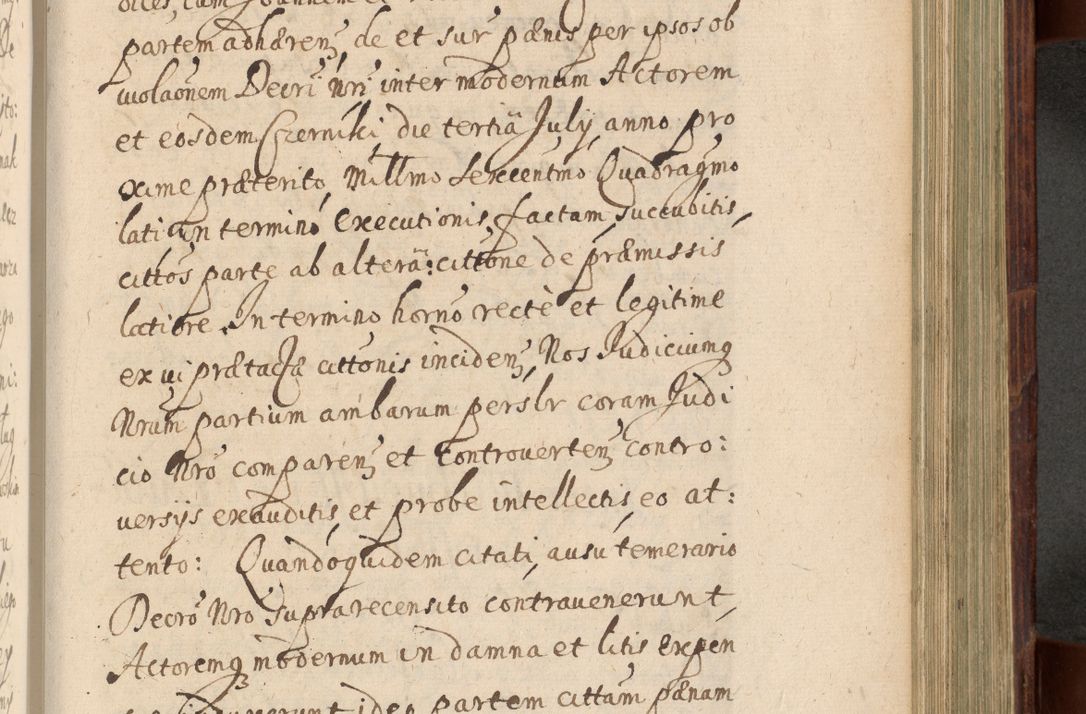 partem adhæren, de et sur pænis per ipsos ob
uiolaonem Decri Nri inter modernum Actorem
et eosdem Czerniki die tertiã July anno pro
xime præterito, Millmo Sexcentmo Quadragmo
lati in termino Executionis, factam, succubitis,
cittos parte ab alterã: cittone de præmissis
latiore In termino horno recte et legitime
ex ui prætactæ cittonis inciden, Nos Iudiciumq
Nrum partium ambarum perslr coram Judi
cio Nro comparen et Controuerten contro:
uersijs exauditis, et probe intellectis, eo at:
tento: Quandoquidem citati, ausu temerario
Decro Nro suprarecensito contrauenerunt,
Actoremq modernum in damna et litis Expen
ideo partem cittam pænam